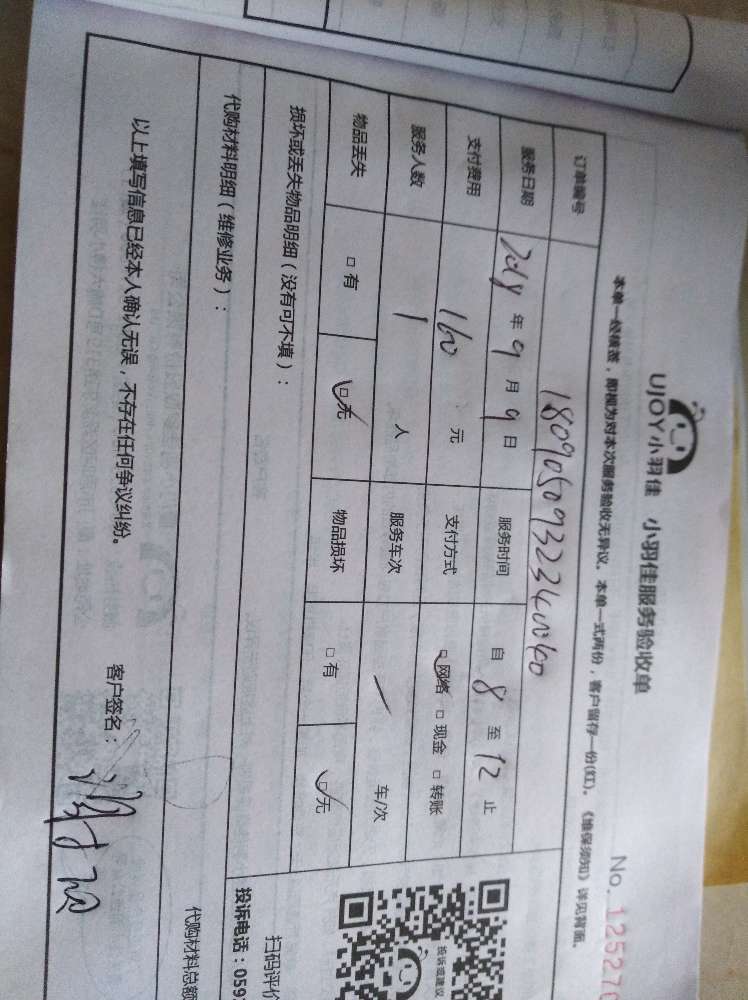 UJOY小羽佳 小羽佳服务验收单
No. 125276
本单一经核签，即视为对本次服务验收无异议。本单一式两份，客户留存一份(红)。《维保须知》详见背面。
订单编号
服务日期 2018 年 9 月 9 日 服务时间 自 8 至 12 止
支付费用 160 元 支付方式 □网络 □现金 □转账
服务人数 1 人 服务车次 / 车/次
物品丢失 □有 □无 物品损坏 □有 □无
损坏或丢失物品明细（没有可不填）：
代购材料明细（维修业务）：
代购材料总额
以上填写信息已经本人确认无误，不存在任何争议纠纷。 客户签名：
投诉或建议
扫码评价
投诉电话：059